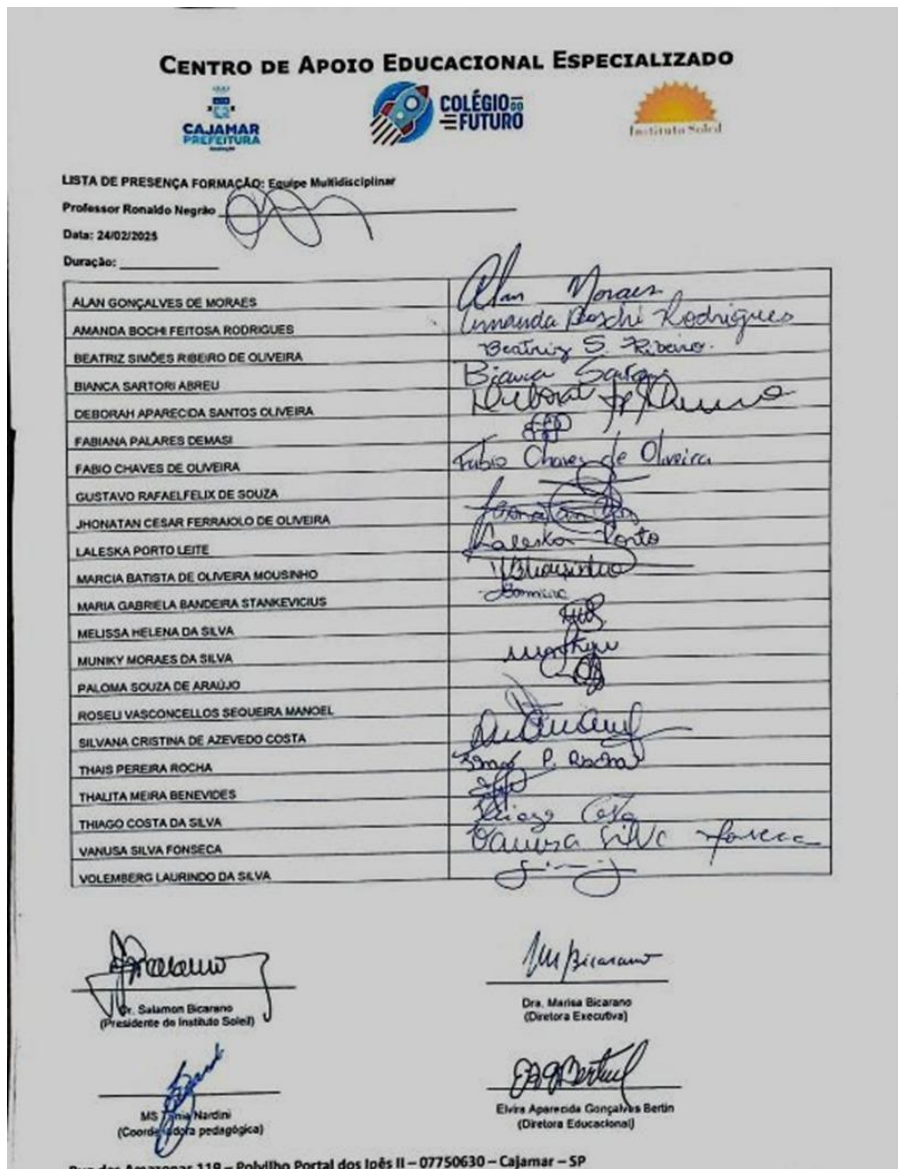 CENTRO DE APOIO EDUCACIONAL ESPECIALIZADO
CAJAMAR
PREFEITURA
COLÉGIO DO
FUTURO
Instituto Soleil
LISTA DE PRESENÇA FORMAÇÃO: Equipe Multidisciplinar
Professor Ronaldo Negrão
Data: 24/02/2025
Duração:
ALAN GONÇALVES DE MORAES Alan Moraes
AMANDA BOCHI FEITOSA RODRIGUES Amanda Boschi Rodrigues
BEATRIZ SIMÕES RIBEIRO DE OLIVEIRA Beatriz S. Ribeiro.
BIANCA SARTORI ABREU Bianca Sartori
DEBORAH APARECIDA SANTOS OLIVEIRA
FABIANA PALARES DEMASI
FABIO CHAVES DE OLIVEIRA Fabio Chaves de Oliveira
GUSTAVO RAFAELFELIX DE SOUZA
JHONATAN CESAR FERRAIOLO DE OLIVEIRA
LALESKA PORTO LEITE Laleska Porto
MARCIA BATISTA DE OLIVEIRA MOUSINHO
MARIA GABRIELA BANDEIRA STANKEVICIUS
MELISSA HELENA DA SILVA
MUNIKY MORAES DA SILVA
PALOMA SOUZA DE ARAÚJO
ROSELI VASCONCELLOS SEQUEIRA MANOEL
SILVANA CRISTINA DE AZEVEDO COSTA
THAIS PEREIRA ROCHA P. Rocha
THALITA MEIRA BENEVIDES
THIAGO COSTA DA SILVA Thiago Costa
VANUSA SILVA FONSECA Vanusa Silva Fonseca
VOLEMBERG LAURINDO DA SILVA
M Bicarano
Dr. Salamon Bicarano
(Presidente do Instituto Soleil)
Dra. Marisa Bicarano
(Diretora Executiva)
MS Tania Nardini
(Coordenadora pedagógica)
Elvira Aparecida Gonçalves Bertin
(Diretora Educacional)
Rua das Amazonas 119 – Polvilho Portal dos Ipês II – 07750630 – Cajamar – SP